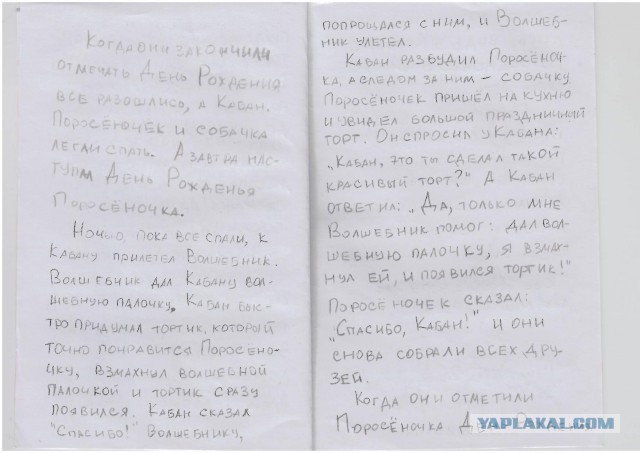 Когда они закончили
отмечать День Рождения
все разошлись, а Кабан.
Поросёночек и собачка
легли спать. А завтра нас-
тупил День Рожденья
Поросёночка.
Ночью пока все спали, к
Кабану прилетел Волшебник.
Волшебник дал Кабану вол-
шебную палочку. Кабан быс-
тро придумал тортик, который
точно понравится Поросёно-
чку, взмахнул волшебной
палочкой и тортик сразу
появился. Кабан сказал
"Спасибо!" Волшебнику,
попрощался с ним, и Волшеб-
ник улетел.
Кабан разбудил Поросёноч-
ка, а следом за ним – собачку
Поросёночек пришёл на кухню
и увидел большой праздничный
торт. Он спросил у Кабана:
„Кабан, это ты сделал такой
красивый торт?" А Кабан
ответил: „Да, только мне
Волшебник помог: дал вол-
шебную палочку, я взмах-
нул ей, и появился тортик!"
Поросёночек сказал:
„Спасибо, Кабан!" и они
снова собрали всех дру-
зей.
Когда они отметили
Поросёночка
YAPLAKAL.COM